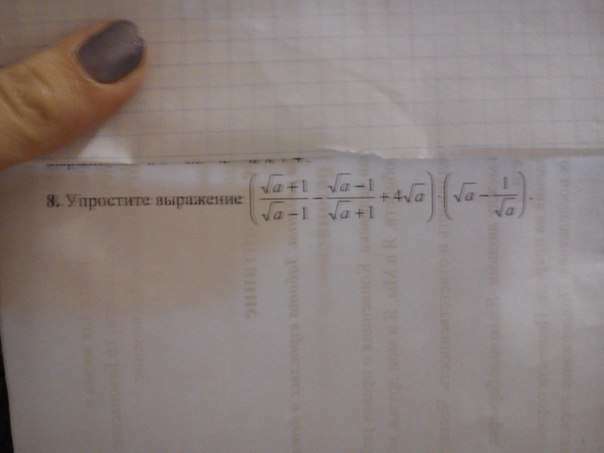 8. Упростите выражение \left( \frac{\sqrt{a}+1}{\sqrt{a}-1} - \frac{\sqrt{a}-1}{\sqrt{a}+1} + 4\sqrt{a} \right) \cdot \left( \sqrt{a} - \frac{1}{\sqrt{a}} \right).